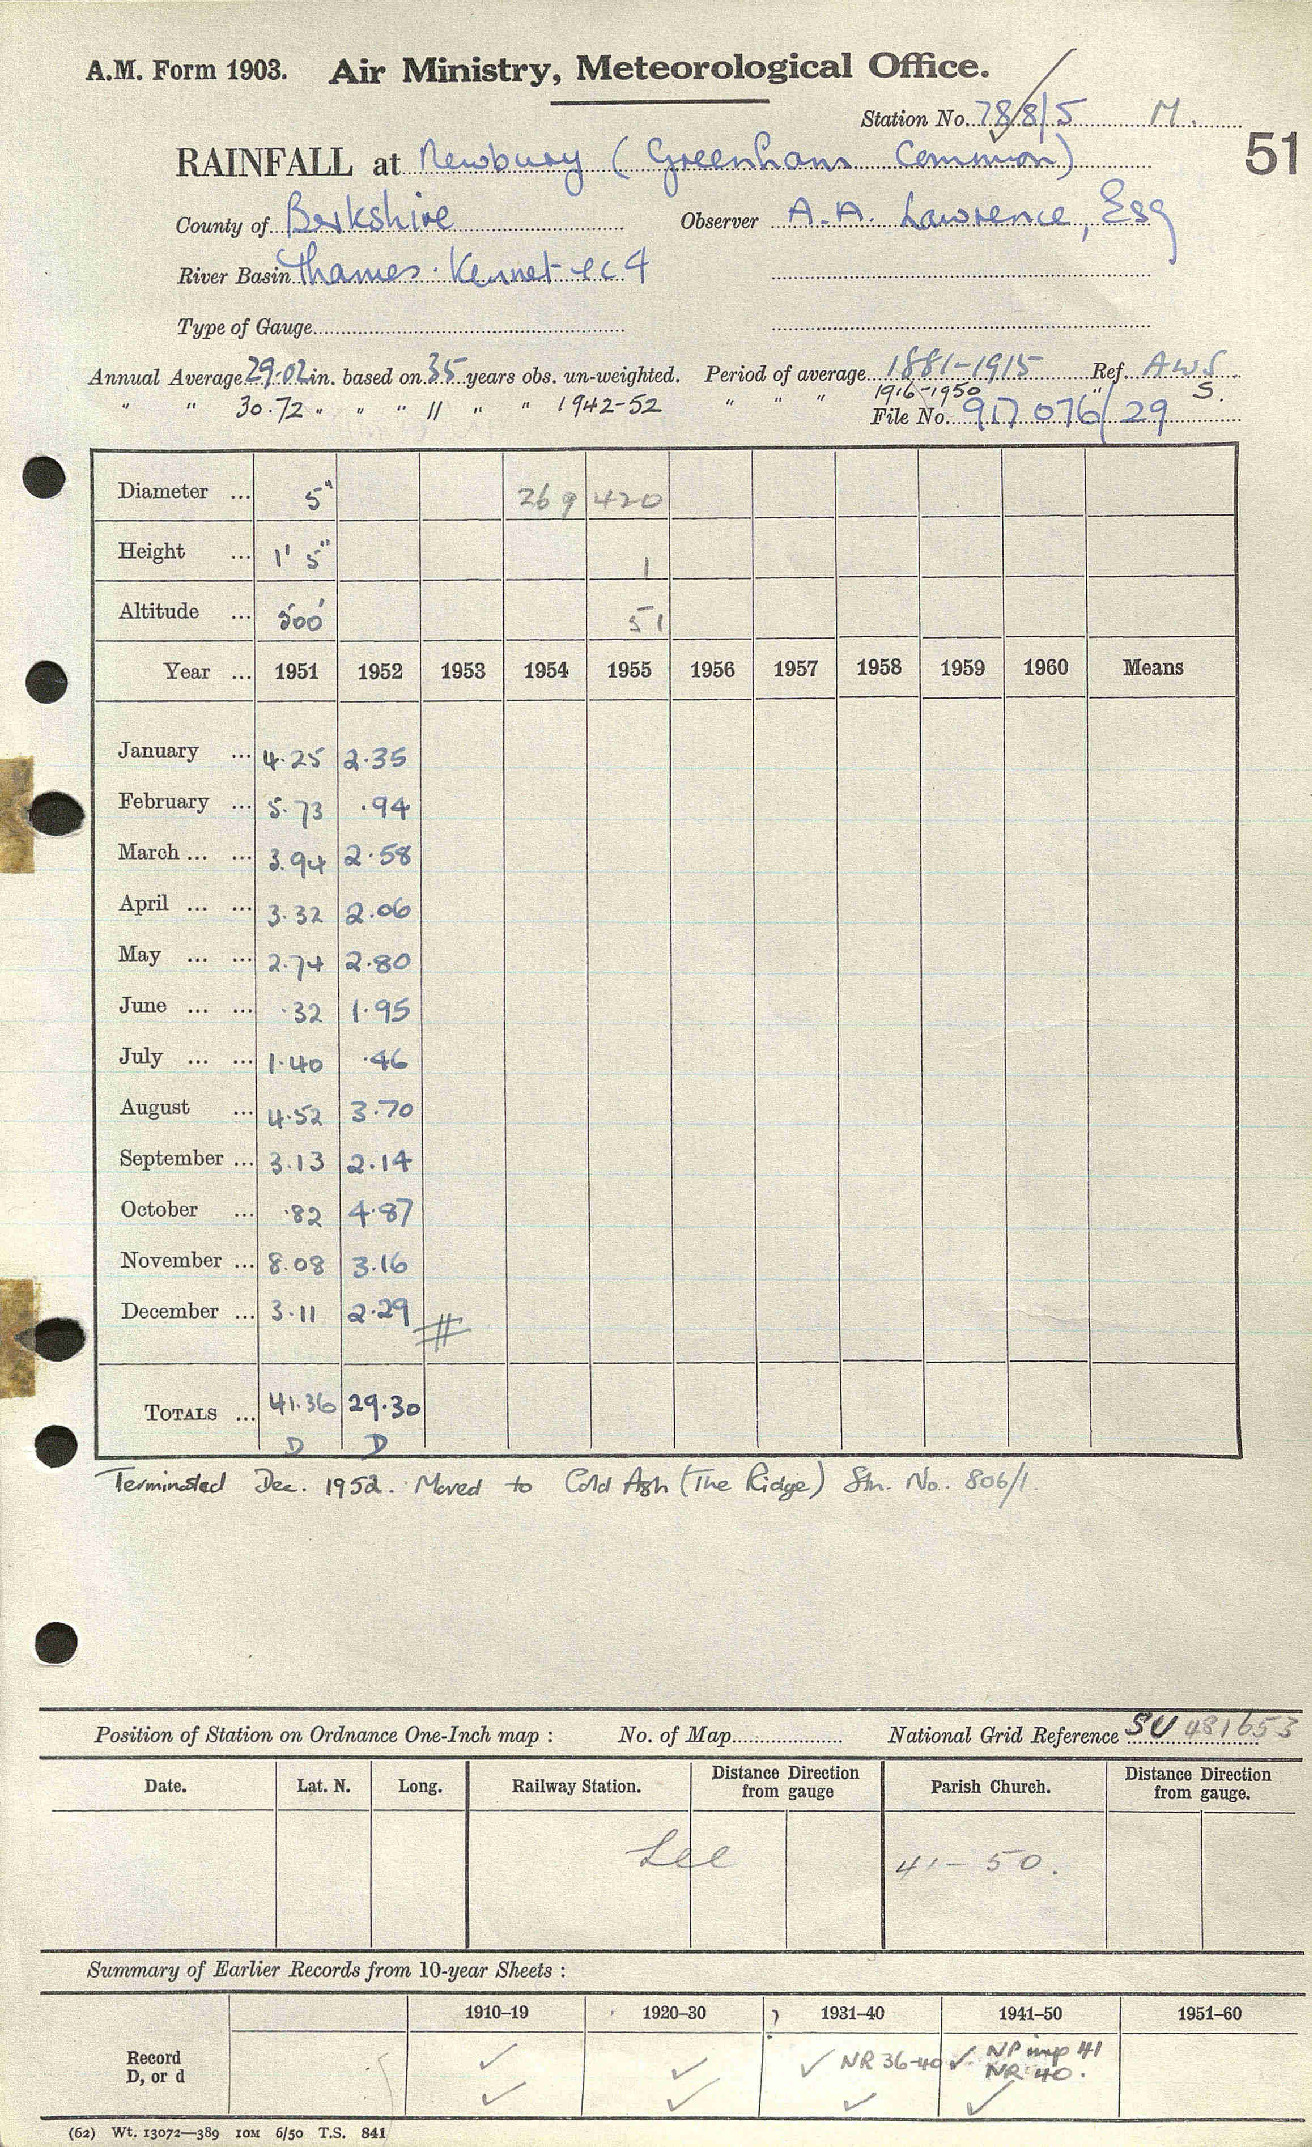 A.M. Form 1903. Air Ministry, Meteorological Office.
Station No. 788/5 M.
51
RAINFALL at Newbury (Greenham Common)
County of Berkshire Observer A.A. Lawrence, Esq
River Basin Thames. Kennet
Type of Gauge
Annual Average 29.02 in. based on 35 years obs. un-weighted. Period of average 1881-1915 Ref. AWS
" " 30.72 " " " 11 " " 1942-52 " " " 1916-1950 " S.
File No. 917076/29
Diameter ... 5" 269 420
Height ... 1' 5" 1
Altitude ... 500' 51
Year ... 1951 1952 1953 1954 1955 1956 1957 1958 1959 1960 Means
January ... 4.25 2.35
February ... 5.73 .94
March ... ... 3.94 2.58
April ... ... 3.32 2.06
May ... ... 2.74 2.80
June ... ... .32 1.95
July ... ... 1.40 .46
August ... 4.52 3.70
September ... 3.13 2.14
October ... .82 4.87
November ... 8.08 3.16
December ... 3.11 2.29
TOTALS ... 41.36 29.30
D D
Terminated Dec. 1952. Moved to Cold Ash (The Ridge) Stn. No. 806/1.
Position of Station on Ordnance One-Inch map : No. of Map National Grid Reference SU 481653
Date. Lat. N. Long. Railway Station. Distance Direction from gauge Parish Church. Distance Direction from gauge.
Lee 41-50.
Summary of Earlier Records from 10-year Sheets :
1910-19 1920-30 1931-40 1941-50 1951-60
Record D, or d ✓ ✓ ✓ NR 36-40 ✓ NP inp 41
NR 40.
✓ ✓ ✓ ✓
(62) Wt. 13072—389 10M 6/50 T.S. 841